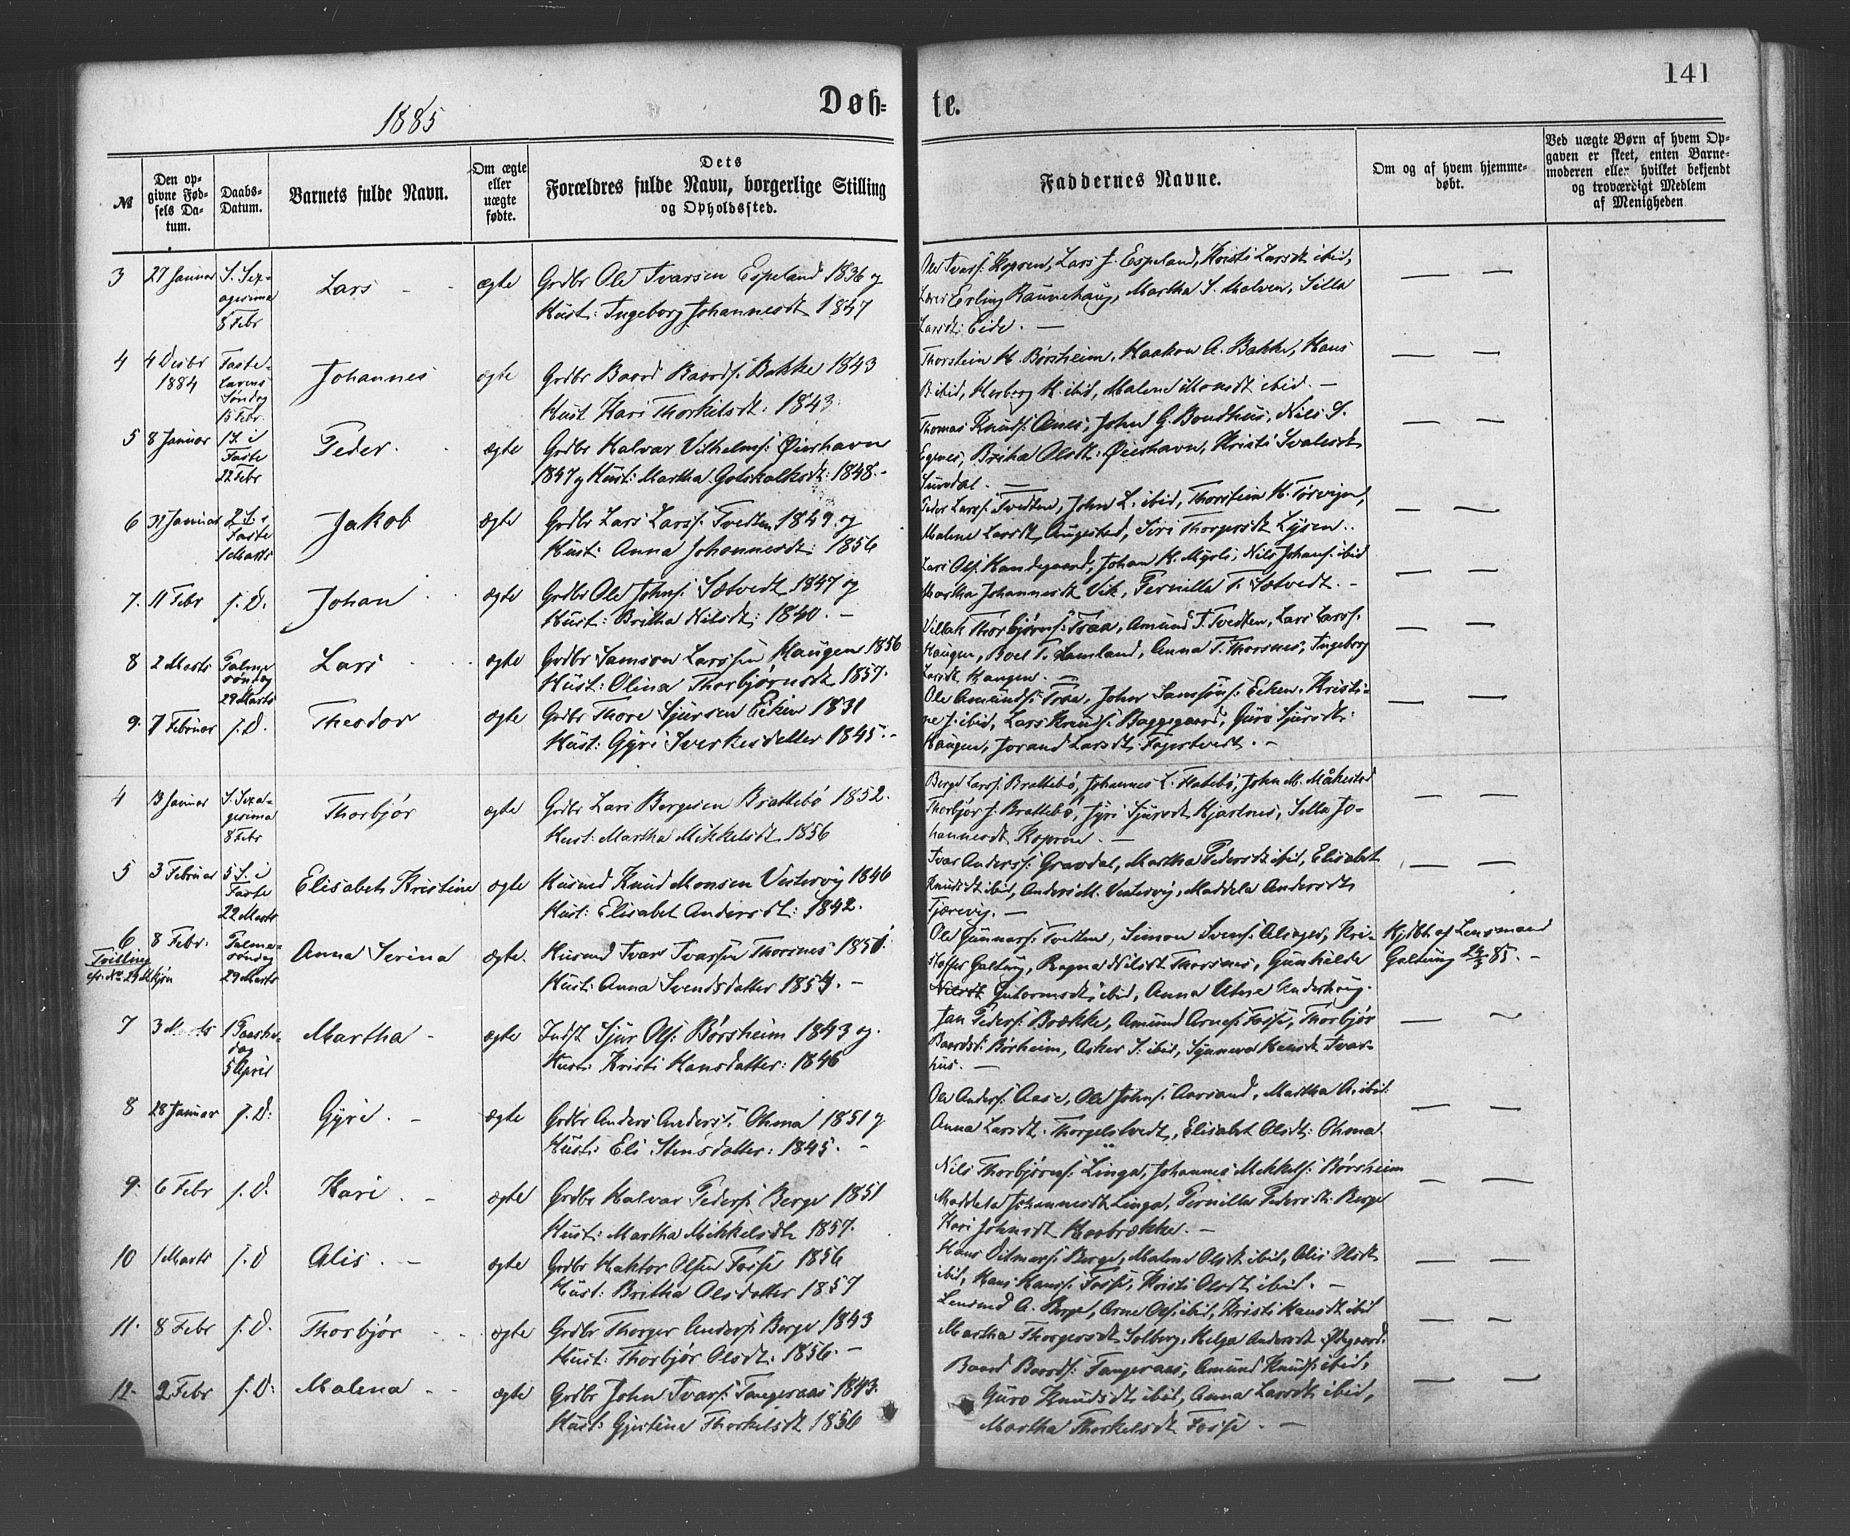 141
1885
Døb-
te.
№
Den op-
givne Fød-
sels Da-
tum.
Daabs-
Datum.
Barnets fulde Navn.
Om ægte
eller
uægte
fødte.
Dets
Forældres fulde Navn, borgerlige Stilling
og Opholdssted.
Faddernes Navne.
Om og af hvem hjemme-
døbt.
Ved uægte Børn af hvem Op-
gaven er skeet, enten Barne-
moderen eller hvilket bekjendt
og troværdigt Medlem
af Menigheden
3 27 Januar S. Sex- Lars ægte Grdbr Ole Ivarsen Espeland 1836 og
agesima Hust: Ingeborg Johannesdt 1847
8 Febr
Ole Ivars: Kopren, Lars J. Espeland, Kristi Larsdt ibid,
Erling Raunehaug, Martha S. Malven, Silla
Larsdt: Eide. —
4 4 Desbr Faste- Johannes ægte Grdbr Baard Baards: Bakke 1843
1884 lavens Hust Kari Thorkelsdt: 1843
Søndag
15 Febr.
Thorstein H. Børsheim, Haakon A. Bakke, Hans
B. ibid, Herborg H. ibid, Malene Monsdt ibid. —
5 8 Januar 1 S. i Peder ægte Grdbr Halvar Vilhelms: Øierhavn
Faste 1847 og Hust: Martha Gotskalksdt: 1848. -
22 Febr
Thomas Knuds:Ænes, John G. Bondhus, Nils S.
Egenes, Britha Olsdt: Øierhavn, Kristi Svalesdt
Sundal. —
6 31 Januar 2 S. i Jakob ægte Grdbr Lars Larss: Tvedten 1849 og
Faste Hust: Anna Johannesdt: 1856
1 Marts
Peder Larss: Tvedten, John L. ibid, Thorstein H.
Malene Larsdt Augestad, Siri Thorgersdt Lysen.
7. 11 Febr s. D. Johan ægte Grdbr Ole Johns: Sætvedt 1847 og
Hust: Britha Nilsdt: 1840. —
Lars Ols: Handegaard, Johan H. Myrli, Nils Johans: ibid
Martha Johannesdt Vik, Pernilla T. Sætvedt. —
8 2 Marts Palme Lars ægte Grdbr Samson Larssen Haugen 1856
søndag Hust: Olina Thorbjørnsdt 1857.
29 Marts
Villak Thorbjørns: Traa, Amund T. Tvedten, Lars Larss.
Haugen, Boel T. Samland, Anna T. Thorsnes, Ingeborg
Larsdt Haugen. —
9. 7 Februar s. D. Theodor ægte Grdbr Thore Sjursen Eiken 1831
Hust: Gyri Sverkesdatter 1845. -
Ole Amunds: Traa, John Samsons: Eiken. Kristi-
ne J. ibid, Lars Knuds: Baggegaard, Guro Sjursdt:
Haugen, Jorand Larsdt: —
4 13 Januar S. Sexa- Thorbjør ægte Grdbr Lars Bergesen Brattebø 1852.
gesima Hust: Martha Mikkelsdt 1856
8 Febr
Berge Larss: Brattebø, Johannes L. Hatebø, John M. Måkestad
Thorbjør J. Brattebø, Jyri Sjursdt Kjartnes, Silla Jo-
hannesdt Kopren. —
5 3 Februar 5 S. i Elisabeth Kristine ægte Husmd Knud Monsen Vestervig 1846
Faste Hust: Elisabet Andersdt: 1842.
22 Marts
Ivar Anderss: Gravdal, Martha Pedersdt ibid, Elisabet
Knudsdt ibid, Anders M. Vestervig, Maddela Andersdt
Tjærevig. —
6 8 Febr. Palme- Anna Serina ægte. Husmd Ivar Ivarssen Thorsnes 1850.
Tvilling søndag Hust: Anna Svendsdatter 1854. —
cfr. No 29 Mkjøn 29 Marts
Ole Gunnars: Tvetten, Simon Svens: Alsager, Kri-
stoffer Galtung, Ragna Nilsdt Thorsnes, Gunhilde
Guttormsdt: ibid, Anna
Hjdbt af Lensmand
Galtung 85. —
7 3 Marts 1 Paaske- Martha - ægte Indst Sjur Ols: Børsheim 1843 og.
dag Hust: Kristi Hansdatter: 1846
5 April
Jan Peders: Brække, Amund Arnes: Fosse, Thorbjør
Baardsdt: Børsheim, Asker S. ibid, Synneva Hansdt Tvar-
hus. —
8 28 Januar s. D: Gyri. — ægte Grdbr Anders Anders: Ohma 1851 og
Hust: Eli Stensdatter: 1845. —
Ole Anders: Aase, Ole Johns: Aarsand, Martha A. ibid:
Anna Larsdt. Thorgelstvedt, Elisabet Olsdt: Ohma.
9. 6 Febr s. D. Kari. — ægte Grdbr Halvar Peders: Berge 1851
Hust: Martha Mikkelsdt 1857.
Nils Thorbjørns: Linga, Johannes Mikkels: Børsheim
Maddela Johannesdt Linga, Pernilla Pedersdt: Berge
Kari Johnsdt —
10 1 Marts s. D Alis. — ægte Grdbr Haktor Olsen Fosse 1856
Hust: Britha Olsdatter 1857
Hans Ditmars: Berge, Malene Olsdt ibid, Alis Olsdt
ibid, Hans Hanss: Fosse, Kristi Olsdt ibid. —
11. 8 Febr s. D. Thorbjør ægte Grdbr Thorger Anders: Berge 1843
Hust: Thorbjør Olsdt: 1856. —
Lensmd A. Berge, Arne Ols: ibid, Kristi Hansdt ibid
Martha Thorgersdt Solberg, Helga Andersdt Ødegaard.
12. 2 Febr s. D: Malena ægte Grdbr John Ivars: Tangeraas 1843.
Hust: Gjertine Thorkelsdt 1856
Baard Baards: Tangeraas, Amund Knuds: ibid,
Guro Knudsdt ibid, Anna Larsdt ibid,
Martha Thorkelsdt Fosse. —